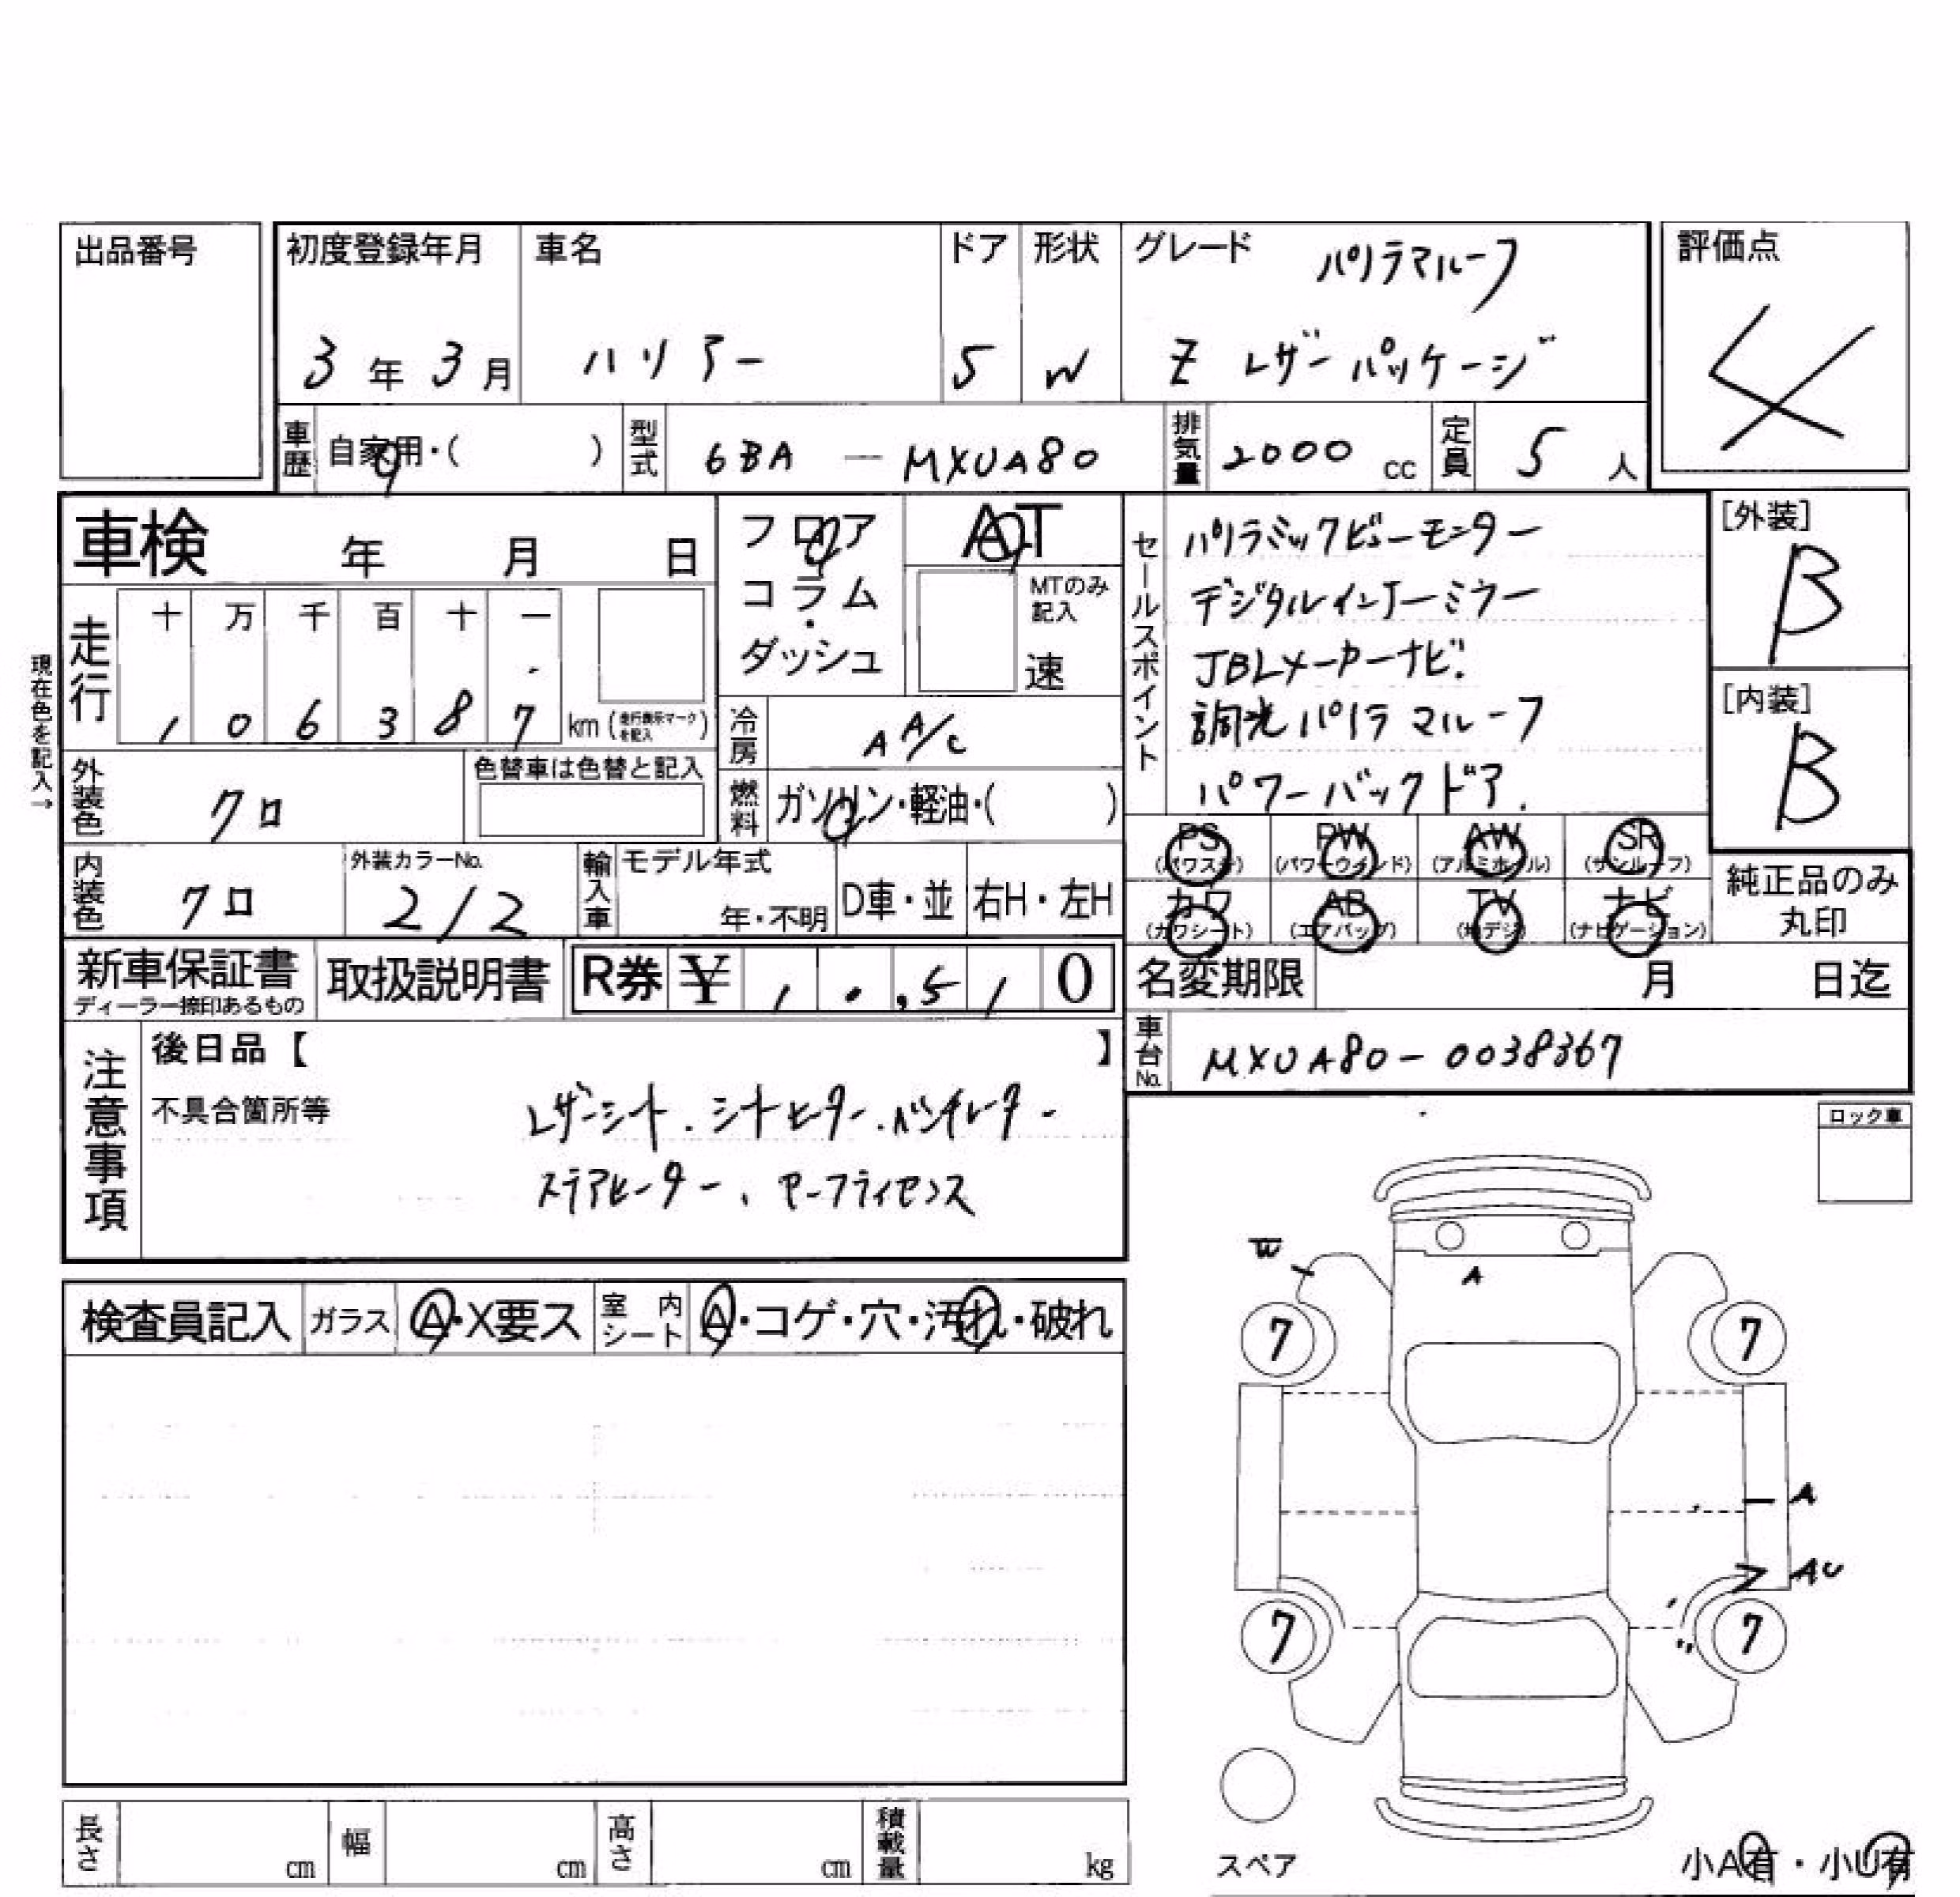 出品番号
初度登録年月
3年3月
車名
ハリアー
ドア
5
形状
W
グレード
パノラマルーフ
Z レザーパッケージ
評価点
4
車歴
自家用・( )
型式
6BA - MXUA80
排気量
2000 cc
定員
5 人
車検 年 月 日
フロア
コラム
・
ダッシュ
AT
MTのみ
記入
速
セールスポイント
パノラミックビューモニター
デジタルインナーミラー
JBLメーカーナビ.
調光パノラマルーフ
パワーバックドア.
[外装]
B
[内装]
B
現在色を記入→
走行
十 万 千 百 十 一
1 0 6 3 8 7 km (走行表示マークを記入)
冷房
AA/C
燃料
ガソリン・軽油・( )
外装色
クロ
色替車は色替と記入
内装色
クロ
外装カラーNo.
212
輸入車
モデル年式
年・不明
D車・並
右H・左H
PS
(パワステ)
PW
(パワーウインド)
AW
(アルミホイル)
SR
(サンルーフ)
カワ
(カワシート)
AB
(エアバッグ)
TV
(地デジ)
ナビ
(ナビゲーション)
純正品のみ
丸印
新車保証書
ディーラー捺印あるもの
取扱説明書
R券 ¥ 1 0,5 1 0
名変期限 月 日迄
車台No.
MXUA80-0038367
注意事項
後日品【 】
不具合箇所等
レザーシート.シートヒーター.ベンチレーター
ステアヒーター、セーフティセンス
ロック車
検査員記入
ガラス
A・X要ス
室内シート
A・コゲ・穴・汚れ・破れ
W
A
7
7
A
AU
7
7
スペア
小A有・小U有
長さ cm
幅 cm
高さ cm
積載量 kg